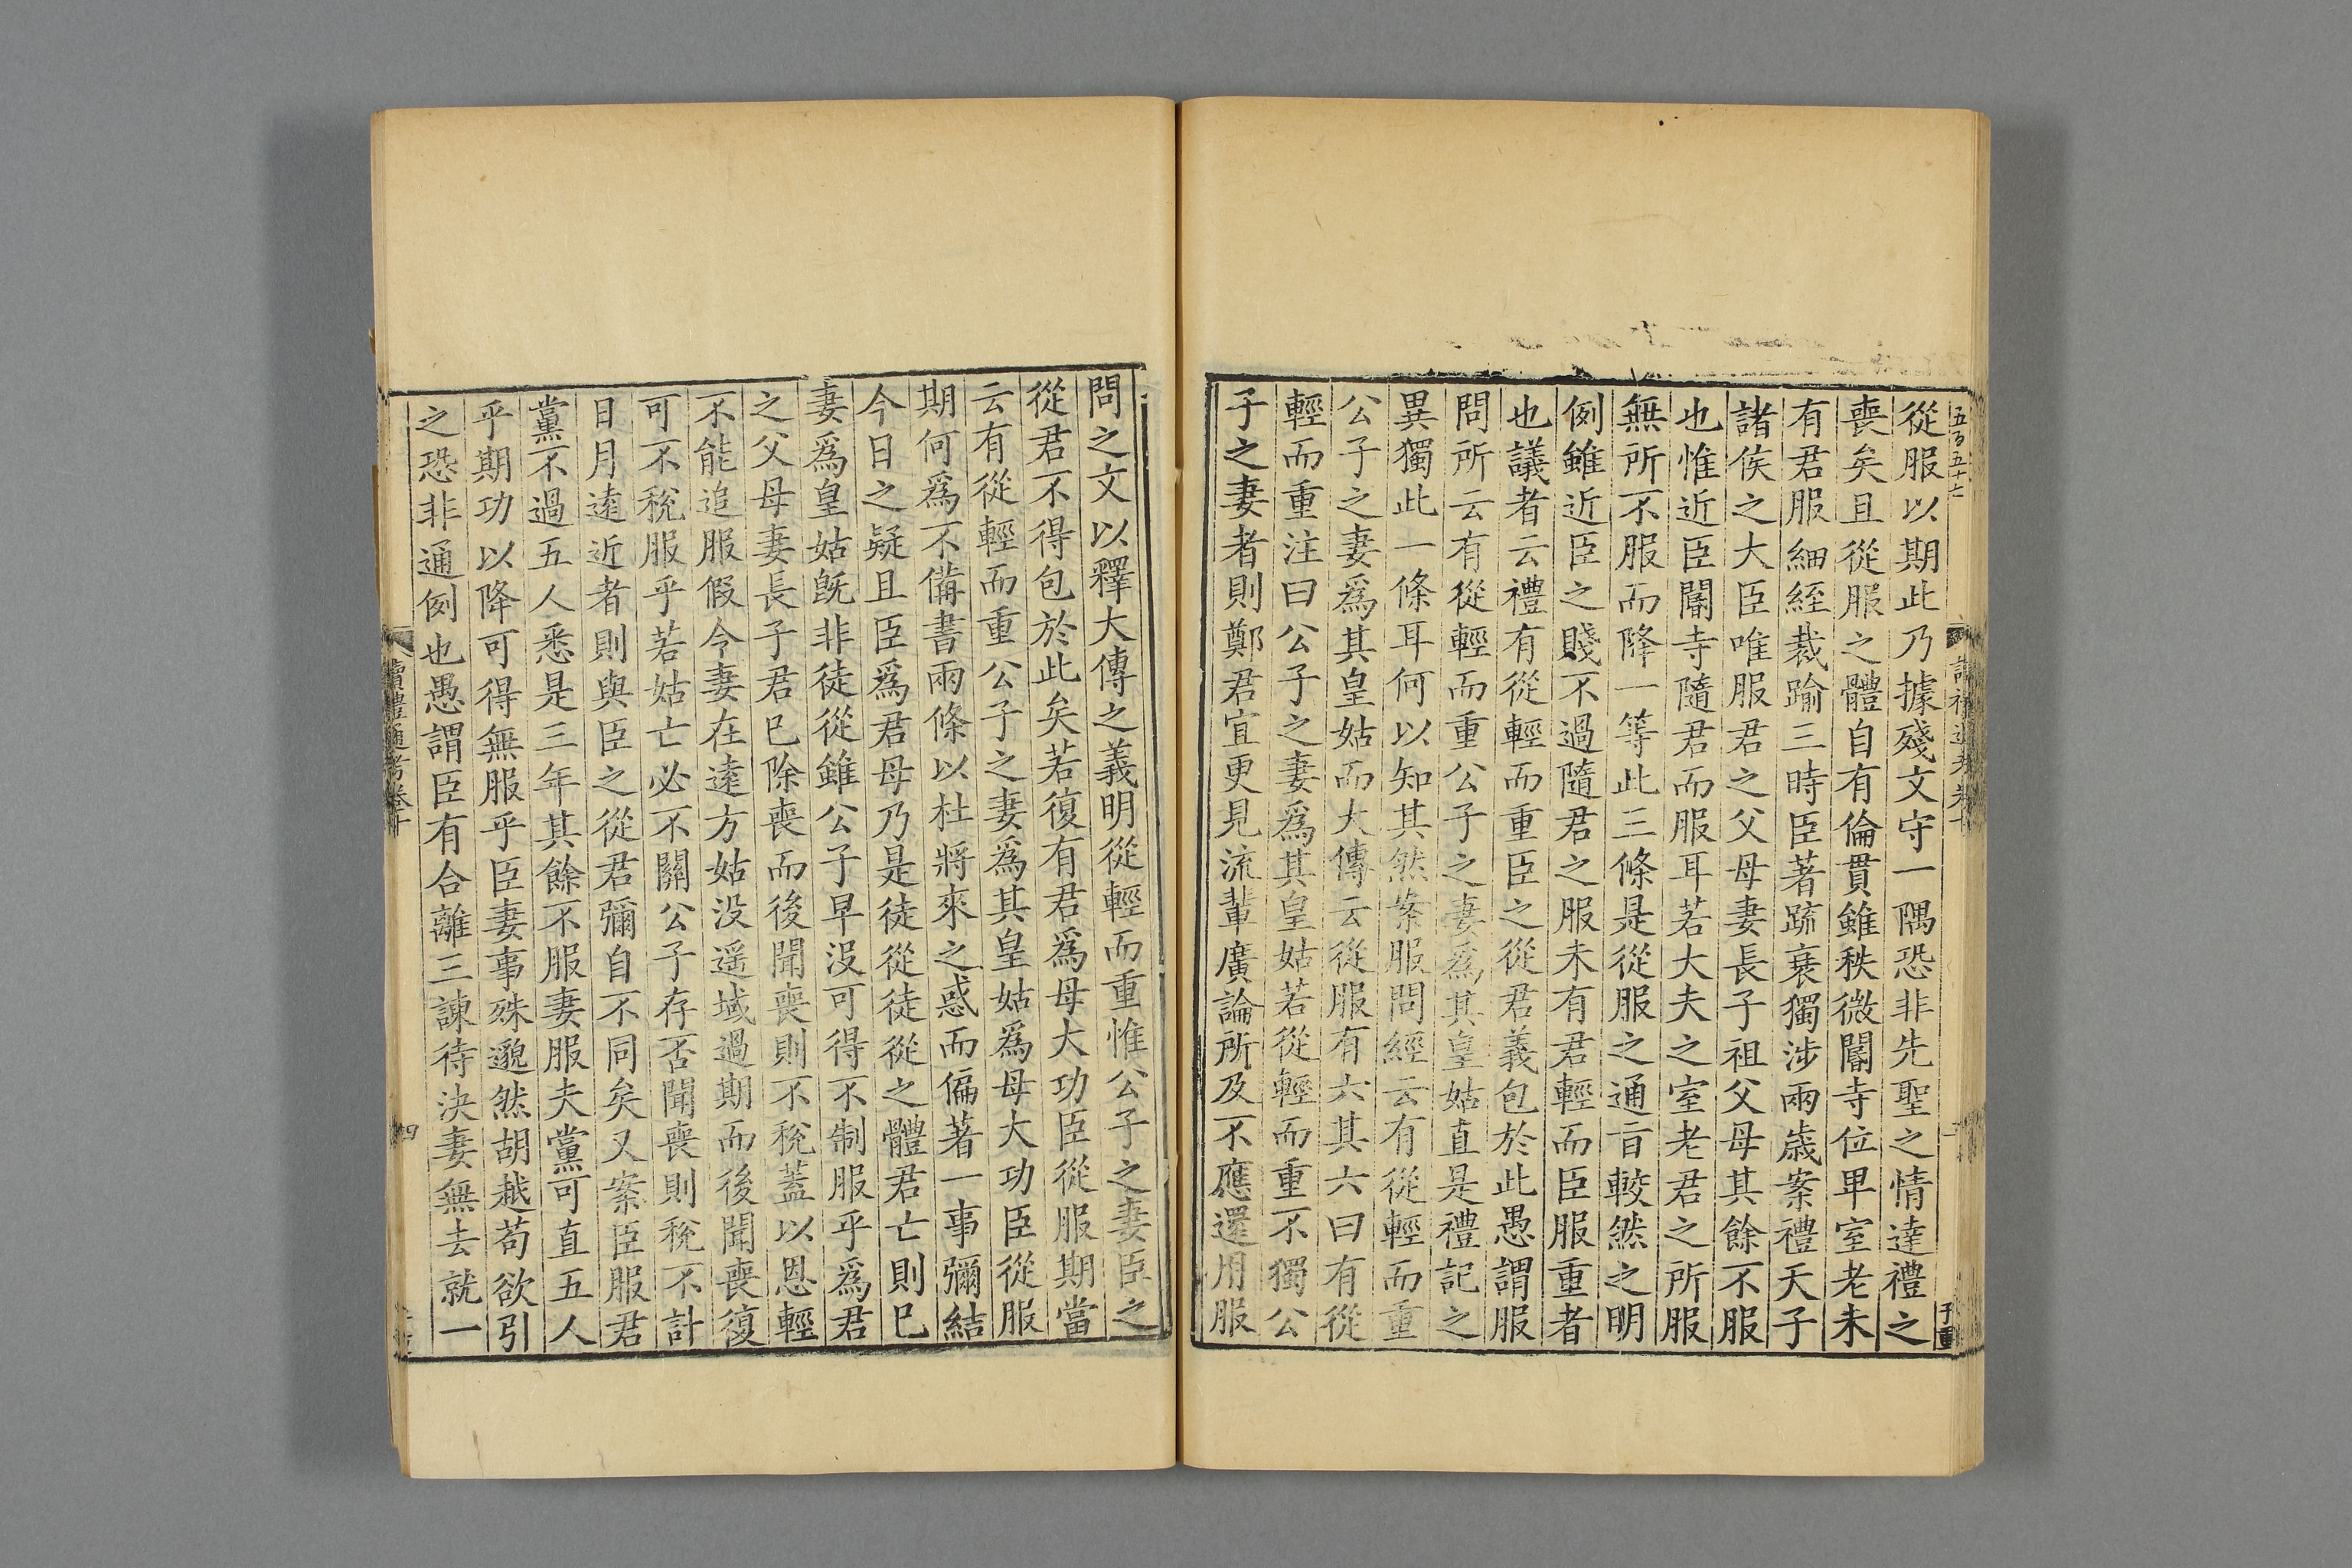 五百五十七
從服以期此乃據殘文守一隅恐非先聖之情達禮之
喪矣且從服之體自有倫貫雖秩微閽寺位卑室老未
有君服細絰裁踰三時臣著疏衰獨涉兩歲案禮天子
諸侯之大臣唯服君之父母妻長子祖父母其餘不服
也惟近臣閽寺隨君而服耳若大夫之室老君之所服
無所不服而降一等此三條是從服之通旨較然之明
例雖近臣之賤不過隨君之服未有君輕而臣服重者
也議者云禮有從輕而重臣之從君義包於此愚謂服
問所云有從輕而重公子之妻爲其皇姑直是禮記之
異獨此一條耳何以知其然案服問經云有從輕而重
公子之妻爲其皇姑而大傳云從服有六其六曰有從
輕而重注曰公子之妻爲其皇姑若從輕而重不獨公
子之妻者則鄭君宜更見流輩廣論所及不應還用服
問之文以釋大傳之義明從輕而重惟公子之妻臣之
從君不得包於此矣若復有君爲母大功臣從服期當
云有從輕而重公子之妻爲其皇姑爲母大功臣從服
期何爲不備書兩條以杜將來之惑而偏著一事彌結
今日之疑且臣爲君母乃是徒從徒從之體君亡則已
妻爲皇姑旣非徒從雖公子早沒可得不制服乎爲君
之父母妻長子君已除喪而後聞喪則不稅蓋以恩輕
不能追服假令妻在遠方姑沒遥域過期而後聞喪復
可不稅服乎若姑亡必不關公子存否聞喪則稅不計
日月遠近者則與臣之從君彌自不同矣又案臣服君
黨不過五人悉是三年其餘不服妻服夫黨可直五人
乎期功以降可得無服乎臣妻事殊邈然胡越苟欲引
之恐非通例也愚謂臣有合離三諫待決妻無去就一
讀禮通考卷十
四